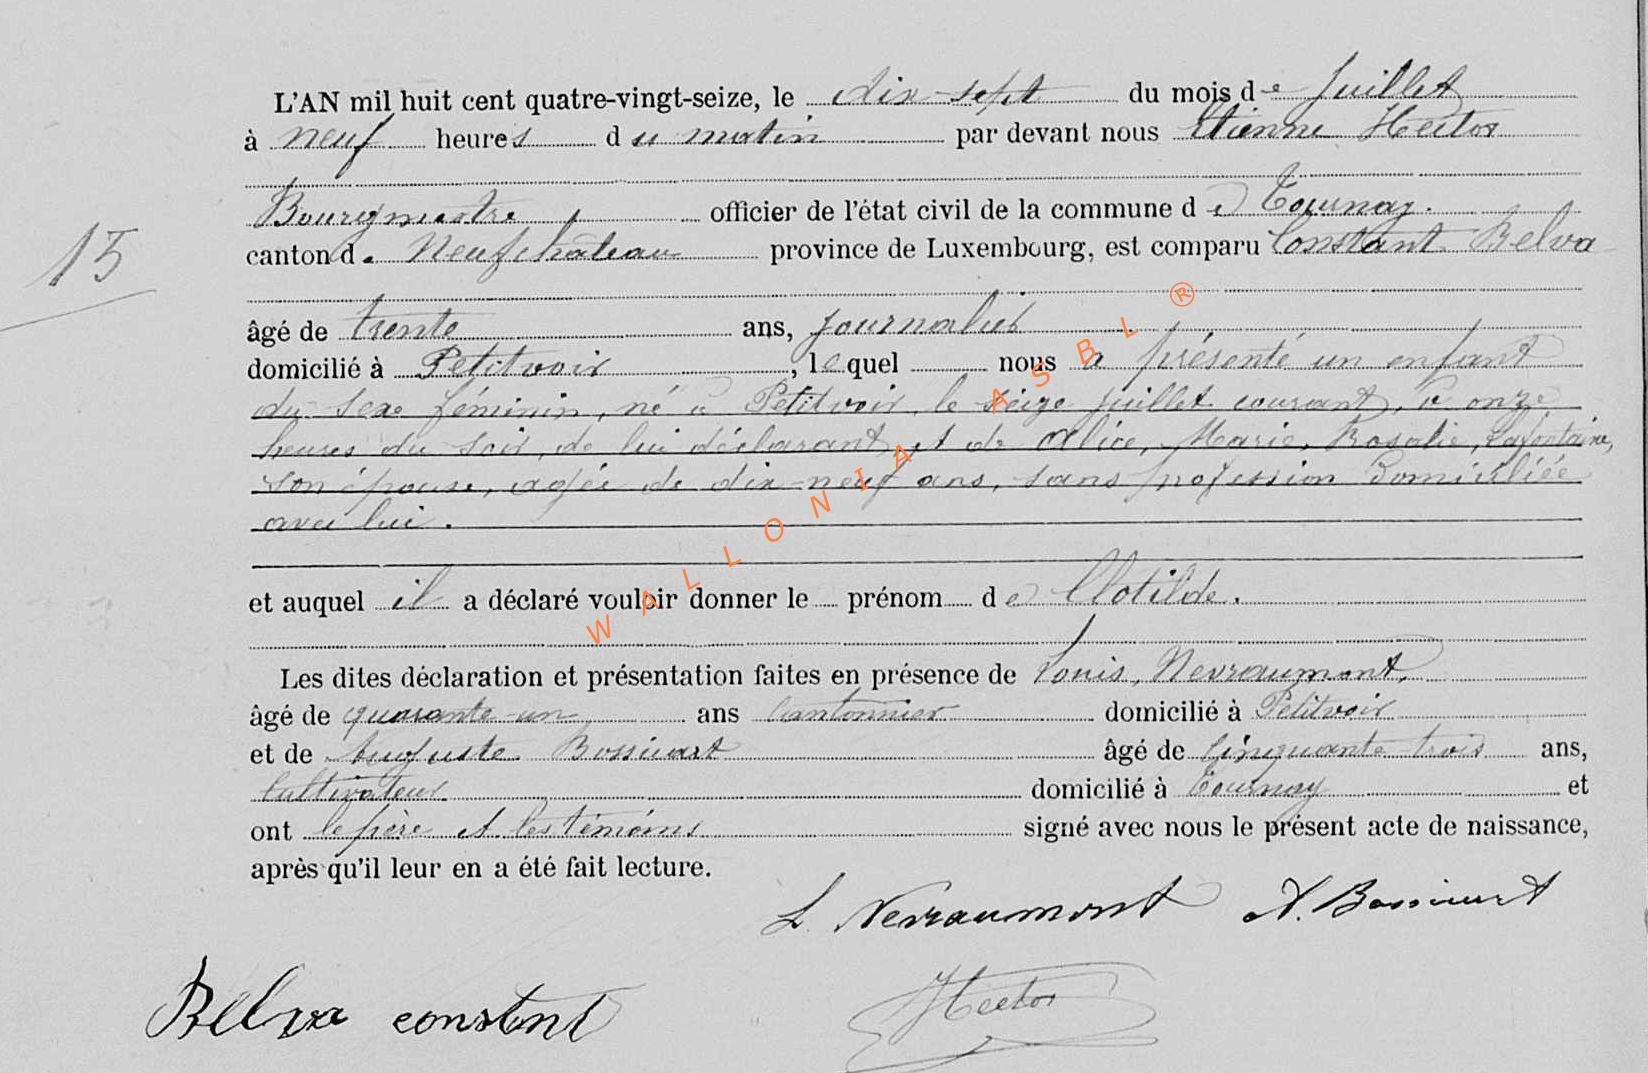 L'AN mil huit cent quatre-vingt-seize, le dix-sept du mois de Juillet
à neuf heures du matin par devant nous Etienne Hector
Bourgmestre, officier de l'état civil de la commune de Tournay.
15
canton de Neufchâteau province de Luxembourg, est comparu Constant Belva
âgé de trente ans, journalier
domicilié à Petitvoir, lequel nous a présenté un enfant
du sexe féminin, né à Petitvoir, le seize juillet courant, à onze
heures du soir, de lui déclarant, et de Alice, Marie, Rosalie, Lafontaine,
son épouse, agée de dix-neuf ans, sans profession Domiciliée
avec lui.
et auquel il a déclaré vouloir donner le prénom de Clotilde.
Les dites déclaration et présentation faites en présence de Louis, Nevraumont,
âgé de quarante-un ans Cantonnier domicilié à Petitvoir
et de Auguste Bossicart âgé de cinquante trois ans,
Cultivateur domicilié à Tournay et
ont le père et les témoins signé avec nous le présent acte de naissance,
après qu'il leur en a été fait lecture.
L. Nevraumont A. Bossicart
Belva constent Hector
WALLONIA ASBL ®